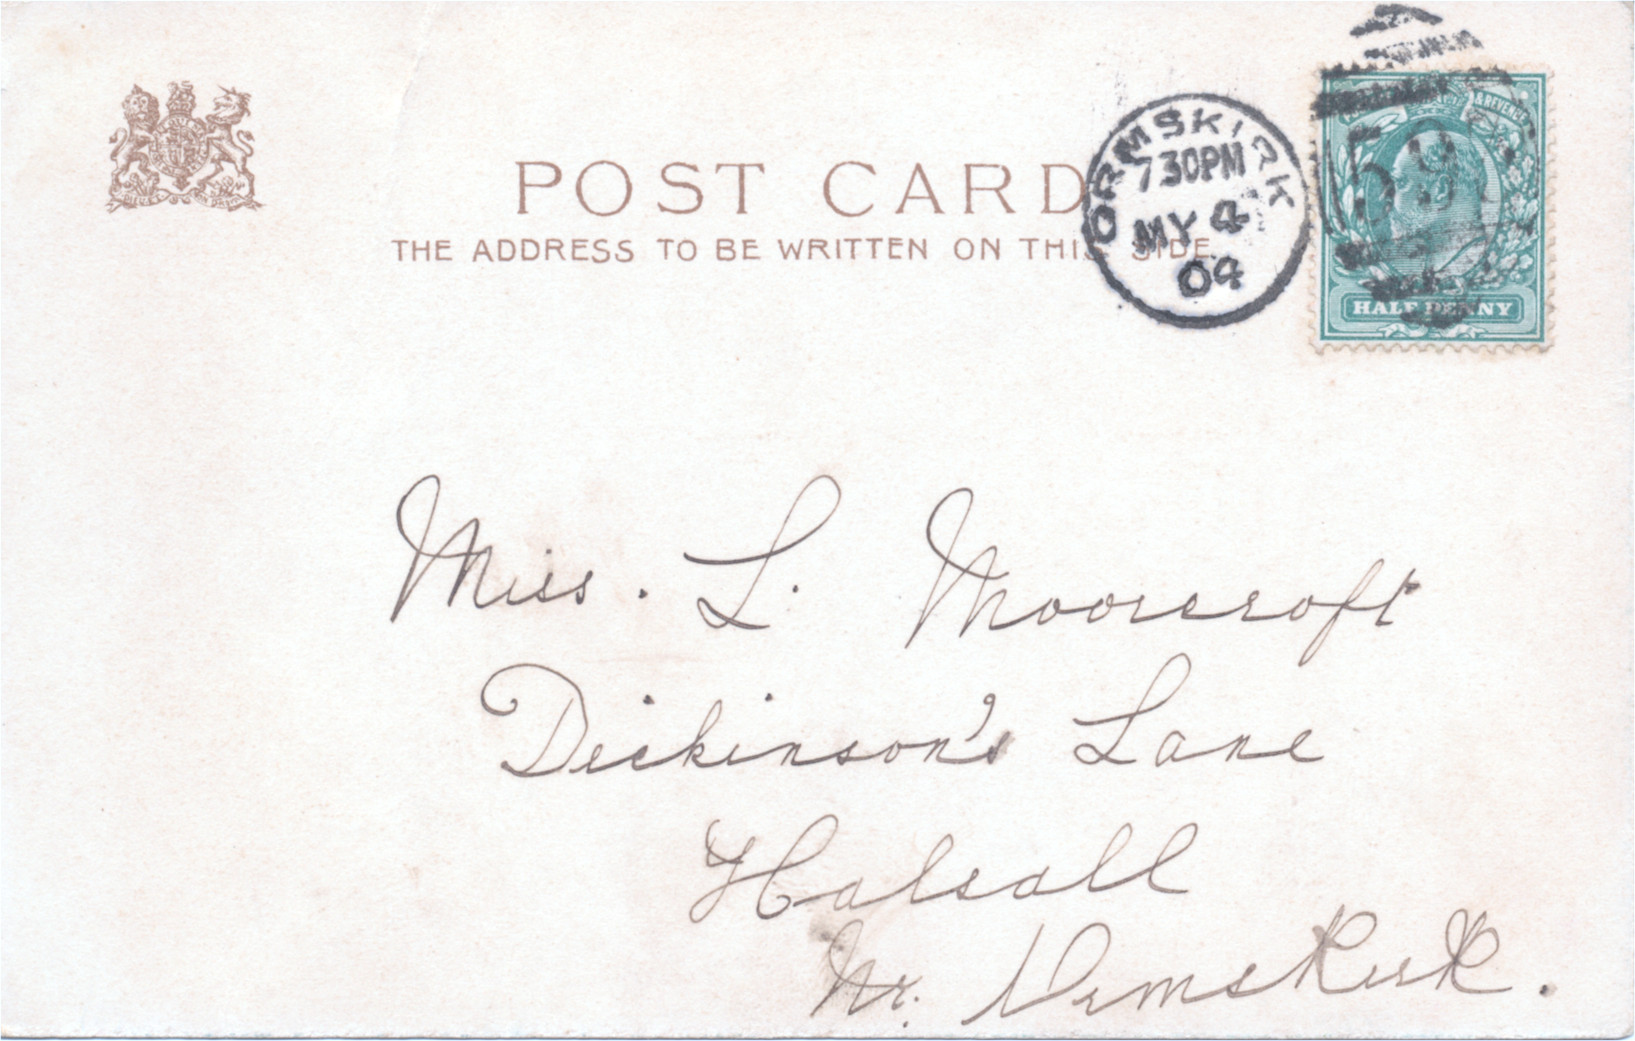 POST CARD
THE ADDRESS TO BE WRITTEN ON THIS SIDE
ORMSKIRK
7 30PM
MY 4
04
& REVENUE
59
HALF PENNY
Miss. L. Moorcroft
Dickinson's Lane
Halsall
Nr. Ormskirk.